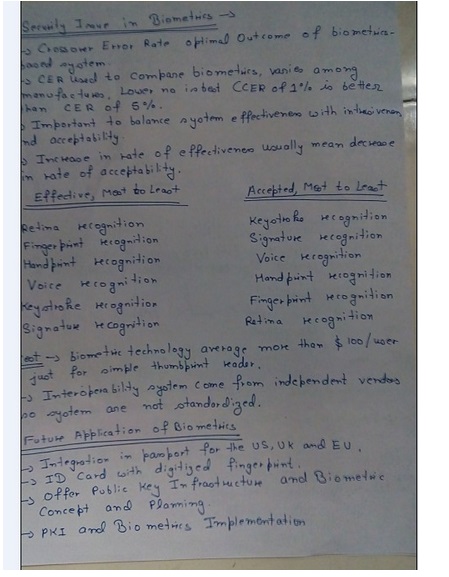 Security Issue in Biometrics →
→ Crossover Error Rate optimal Outcome of biometrics-
based system.
→ CER used to compare biometrics, varies among
manufactures, Lower no is best CCER of 1% is better
than CER of 5%.
Important to balance system effectiveness with intrusiveness
nd acceptability.
Increase in rate of effectiveness usually mean decrease
in rate of acceptability.
Effective, Most to Least
Retina recognition
Fingerprint recognition
Handprint recognition
Voice recognition
Keystroke recognition
Signature recognition
Accepted, Most to Least
Keystroke recognition
Signature recognition
Voice recognition
Handprint recognition
Fingerprint recognition
Retina recognition
→ biometric technology average more than $100/user
just for simple thumbprint reader.
→ Interoperability system come from independent vendors
so system are not standardized.
Future Application of Biometrics
→ Integration in passport for the US, UK and EU.
→ ID Card with digitized fingerprint.
→ Offer Public Key Infrastructure and Biometric
Concept and Planning
→ PKI and Biometrics Implementation